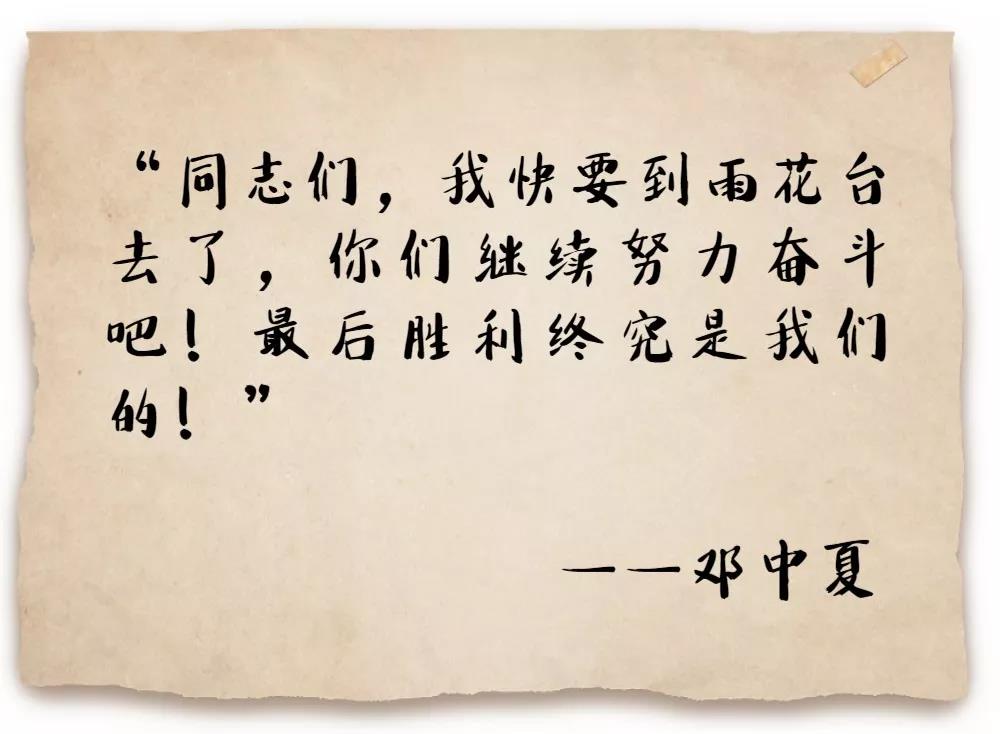 “同志们，我快要到雨花台
去了，你们继续努力奋斗
吧！最后胜利终究是我们
的！”
——邓中夏